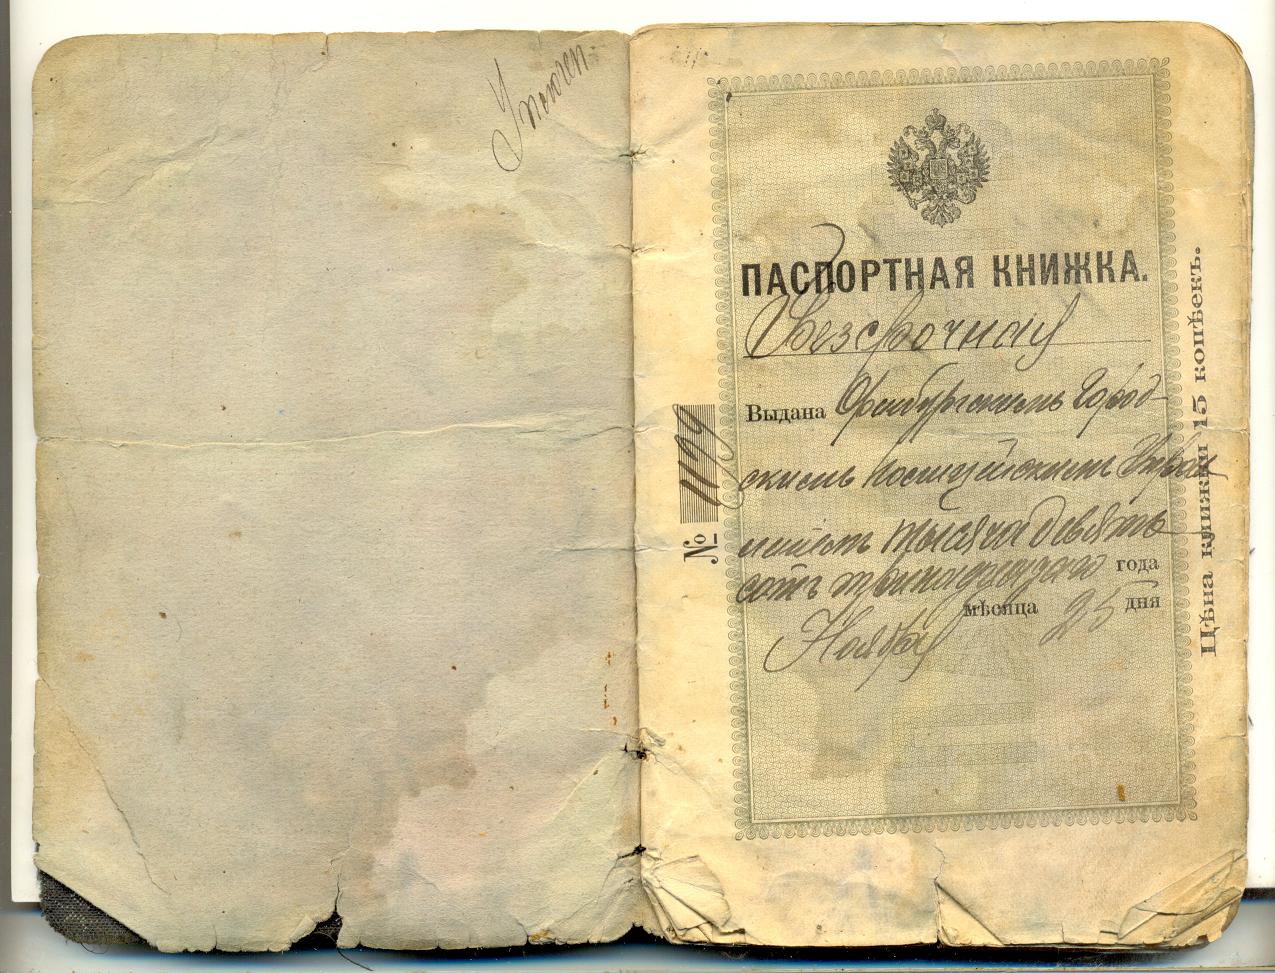 ПАСПОРТНАЯ КНИЖКА.
Безсрочная
Выдана Оренбургскимъ Город-
скимъ Полицейскимъ Управ
тысяча девять
сотъ тринадцатаго года
мѣсяца 25 дня
Ноября
№ 1199
Цѣна книжки 15 копѣекъ.